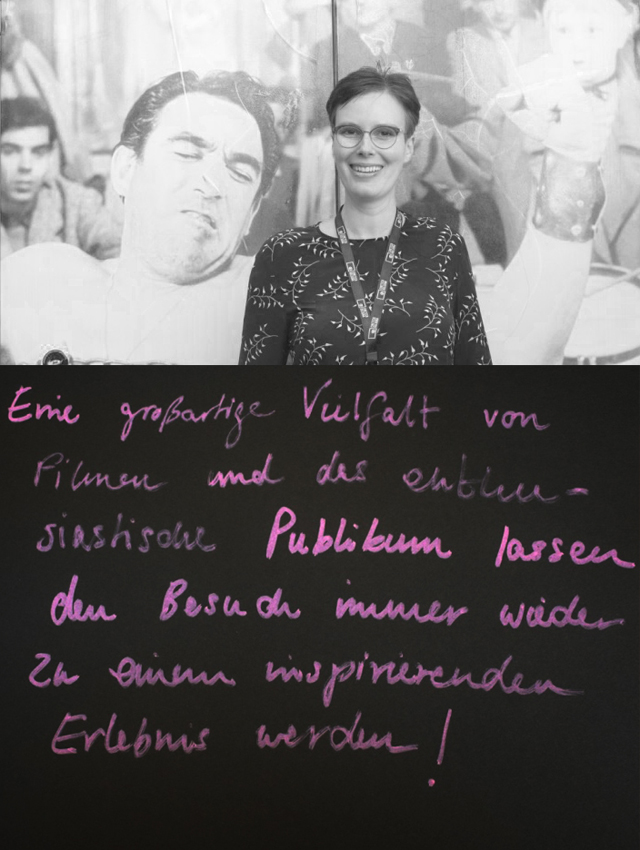 Eine großartige Vielfalt von
Filmen und das enthu-
siastische Publikum lassen
den Besuch immer wieder
zu einem inspirierenden
Erlebnis werden!